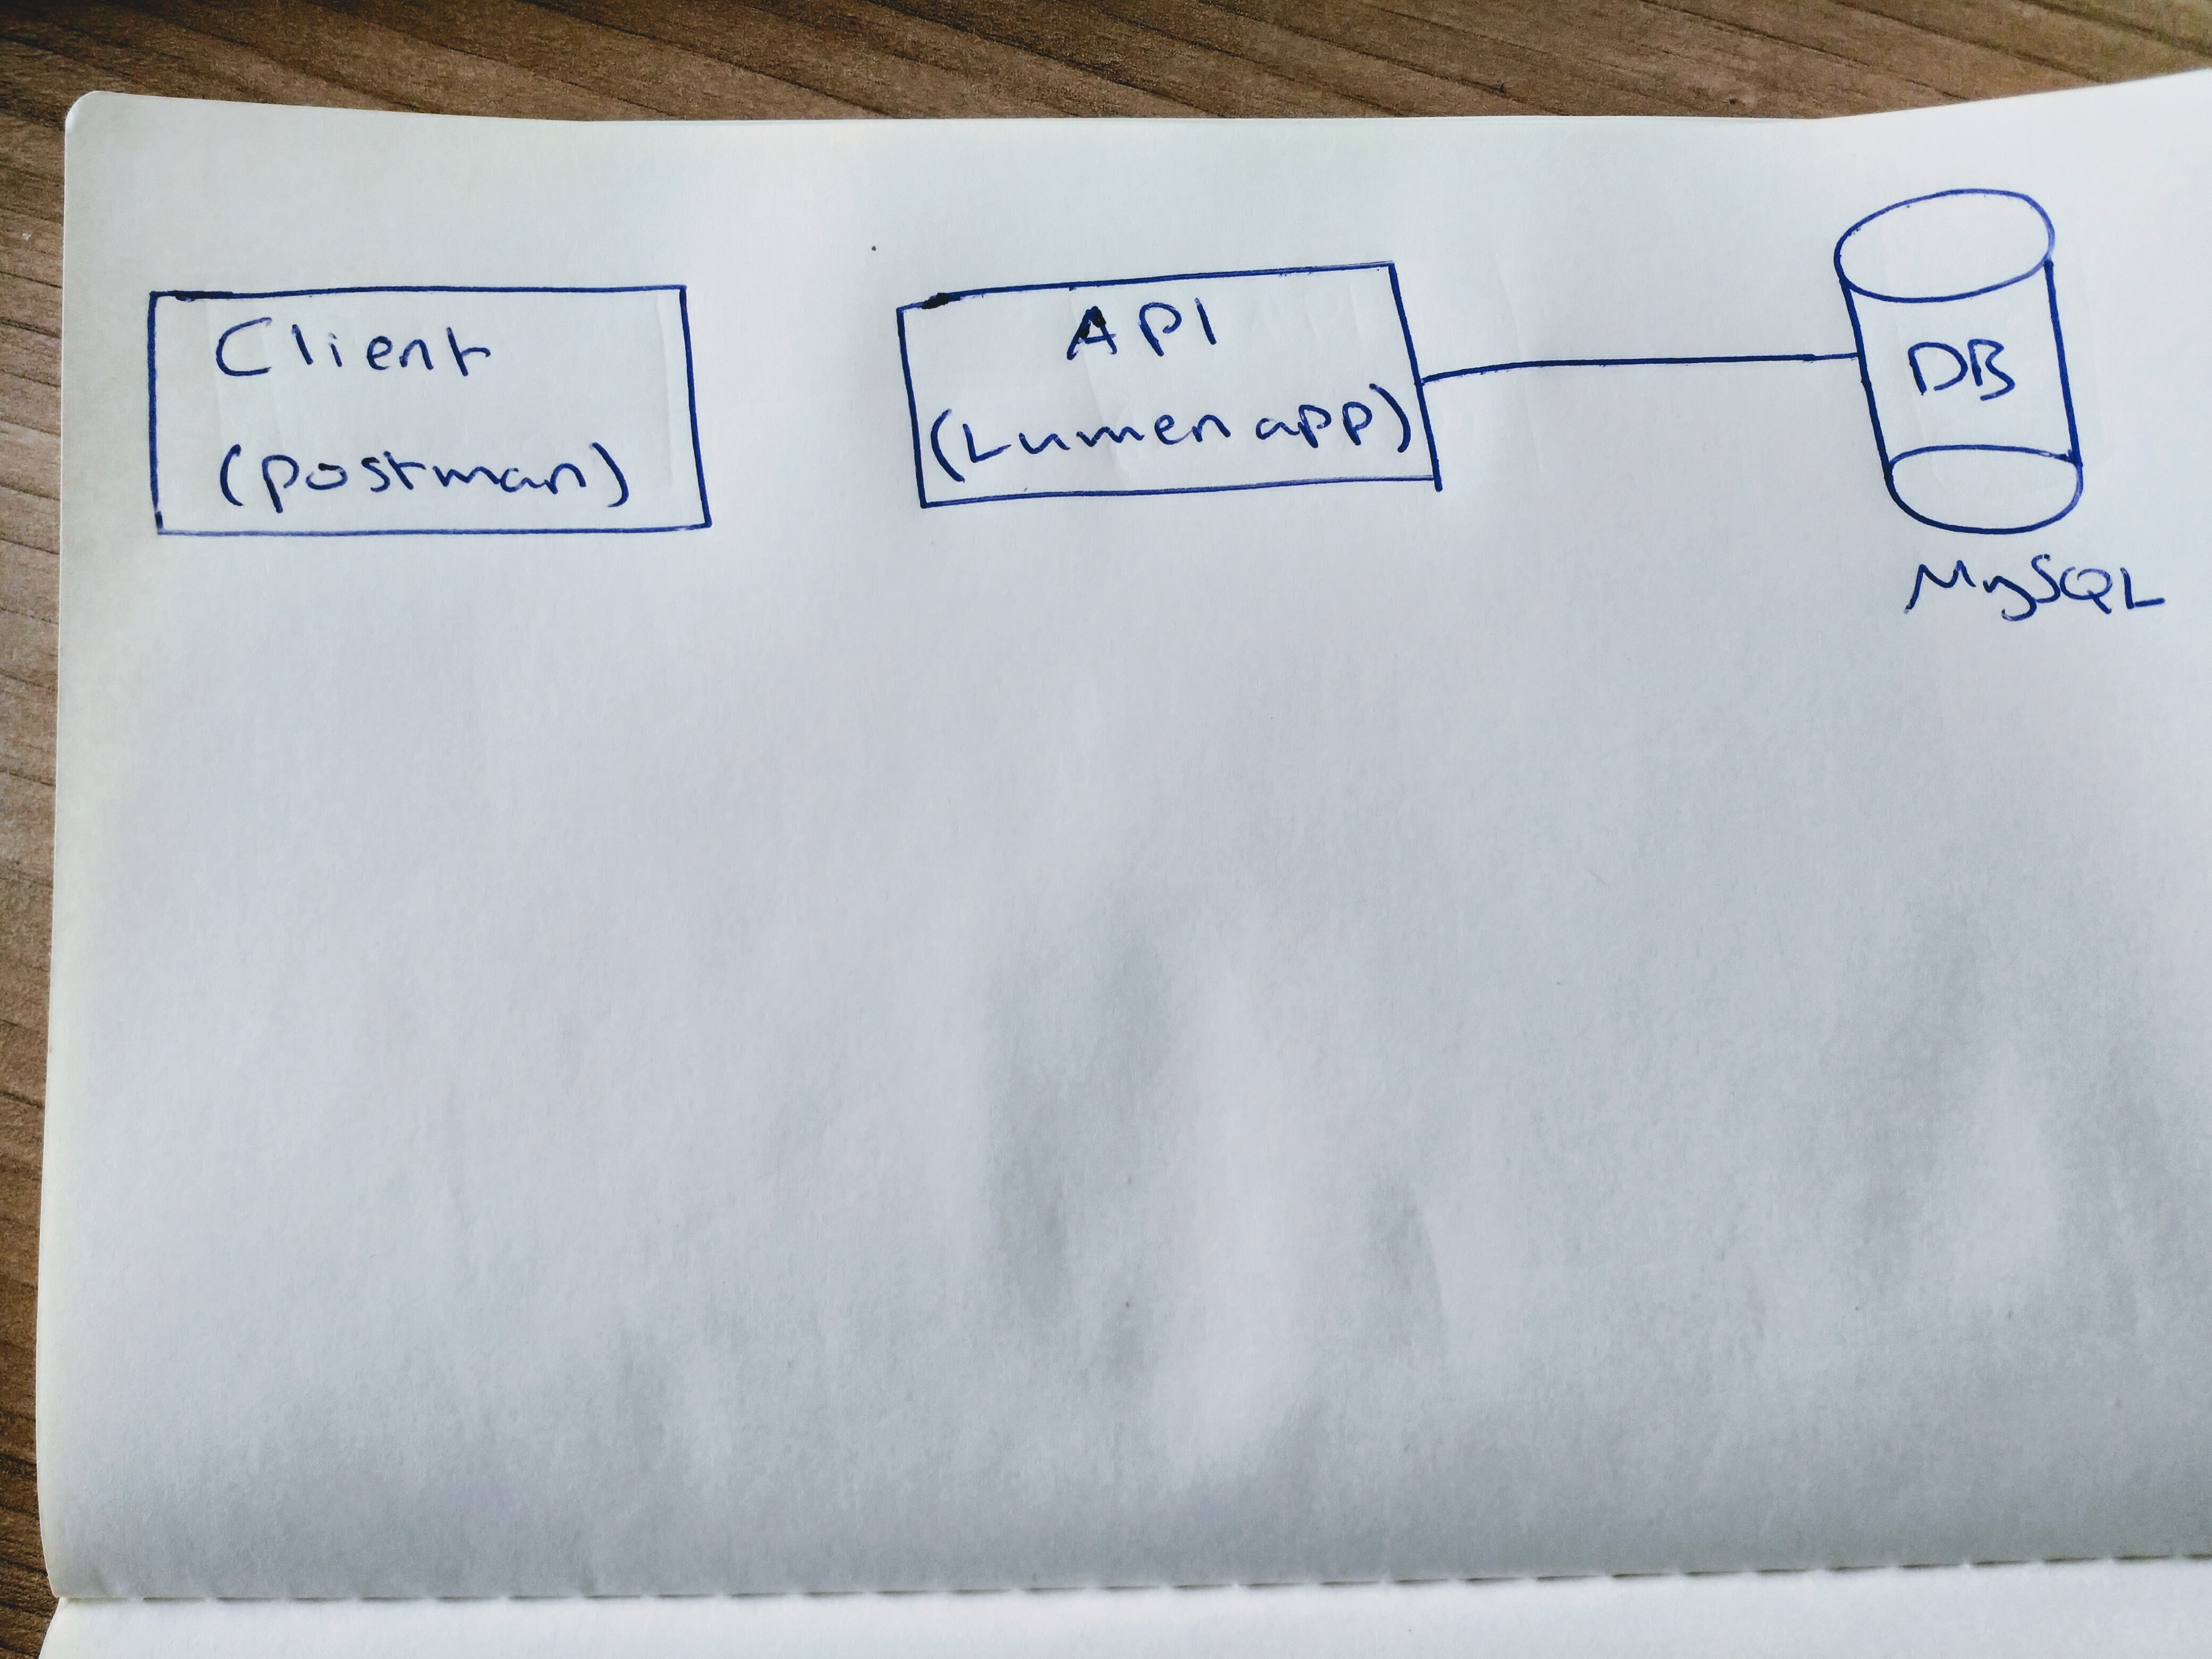 Client
(postman)
API
(Lumen app)
DB
MySQL